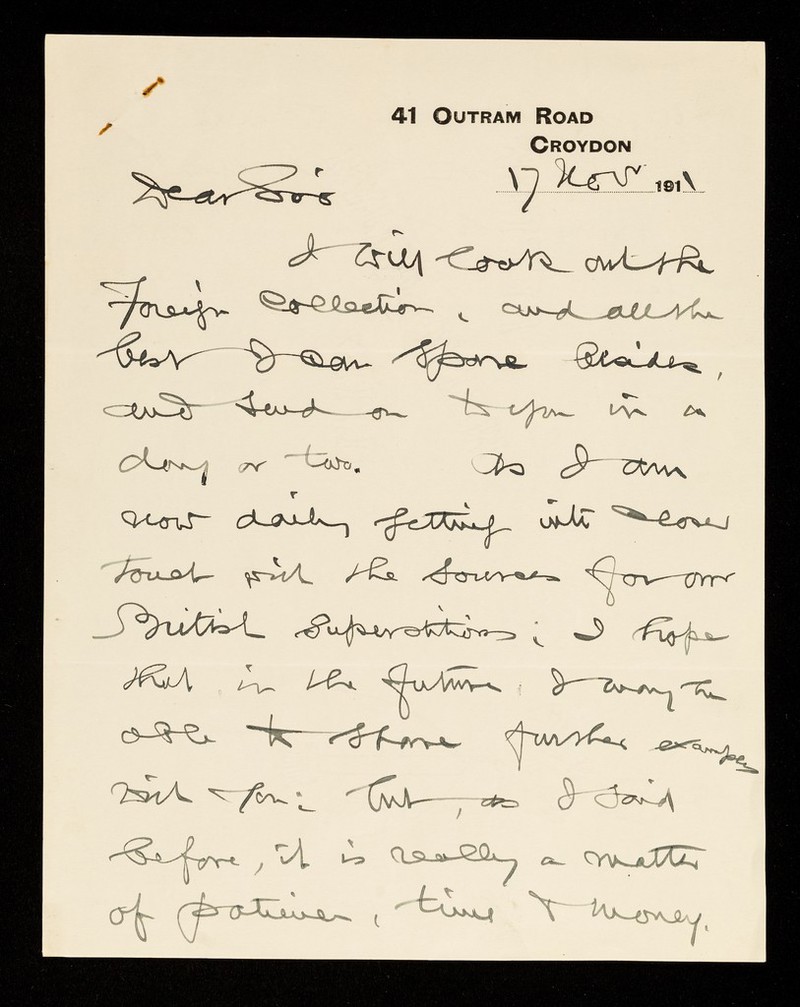 41 OUTRAM ROAD
CROYDON
17 Nov 1911
Dear Sir
I will look out the
Foreign Collection, and all the
best I can spare besides,
and send on to you in a
day or two. As I am
now daily getting into closer
touch with the sources for our
British Superstitions; I hope
that in the future I may be
able to share further examples
with you: but, as I said
before, it is really a matter
of patience, time & money.